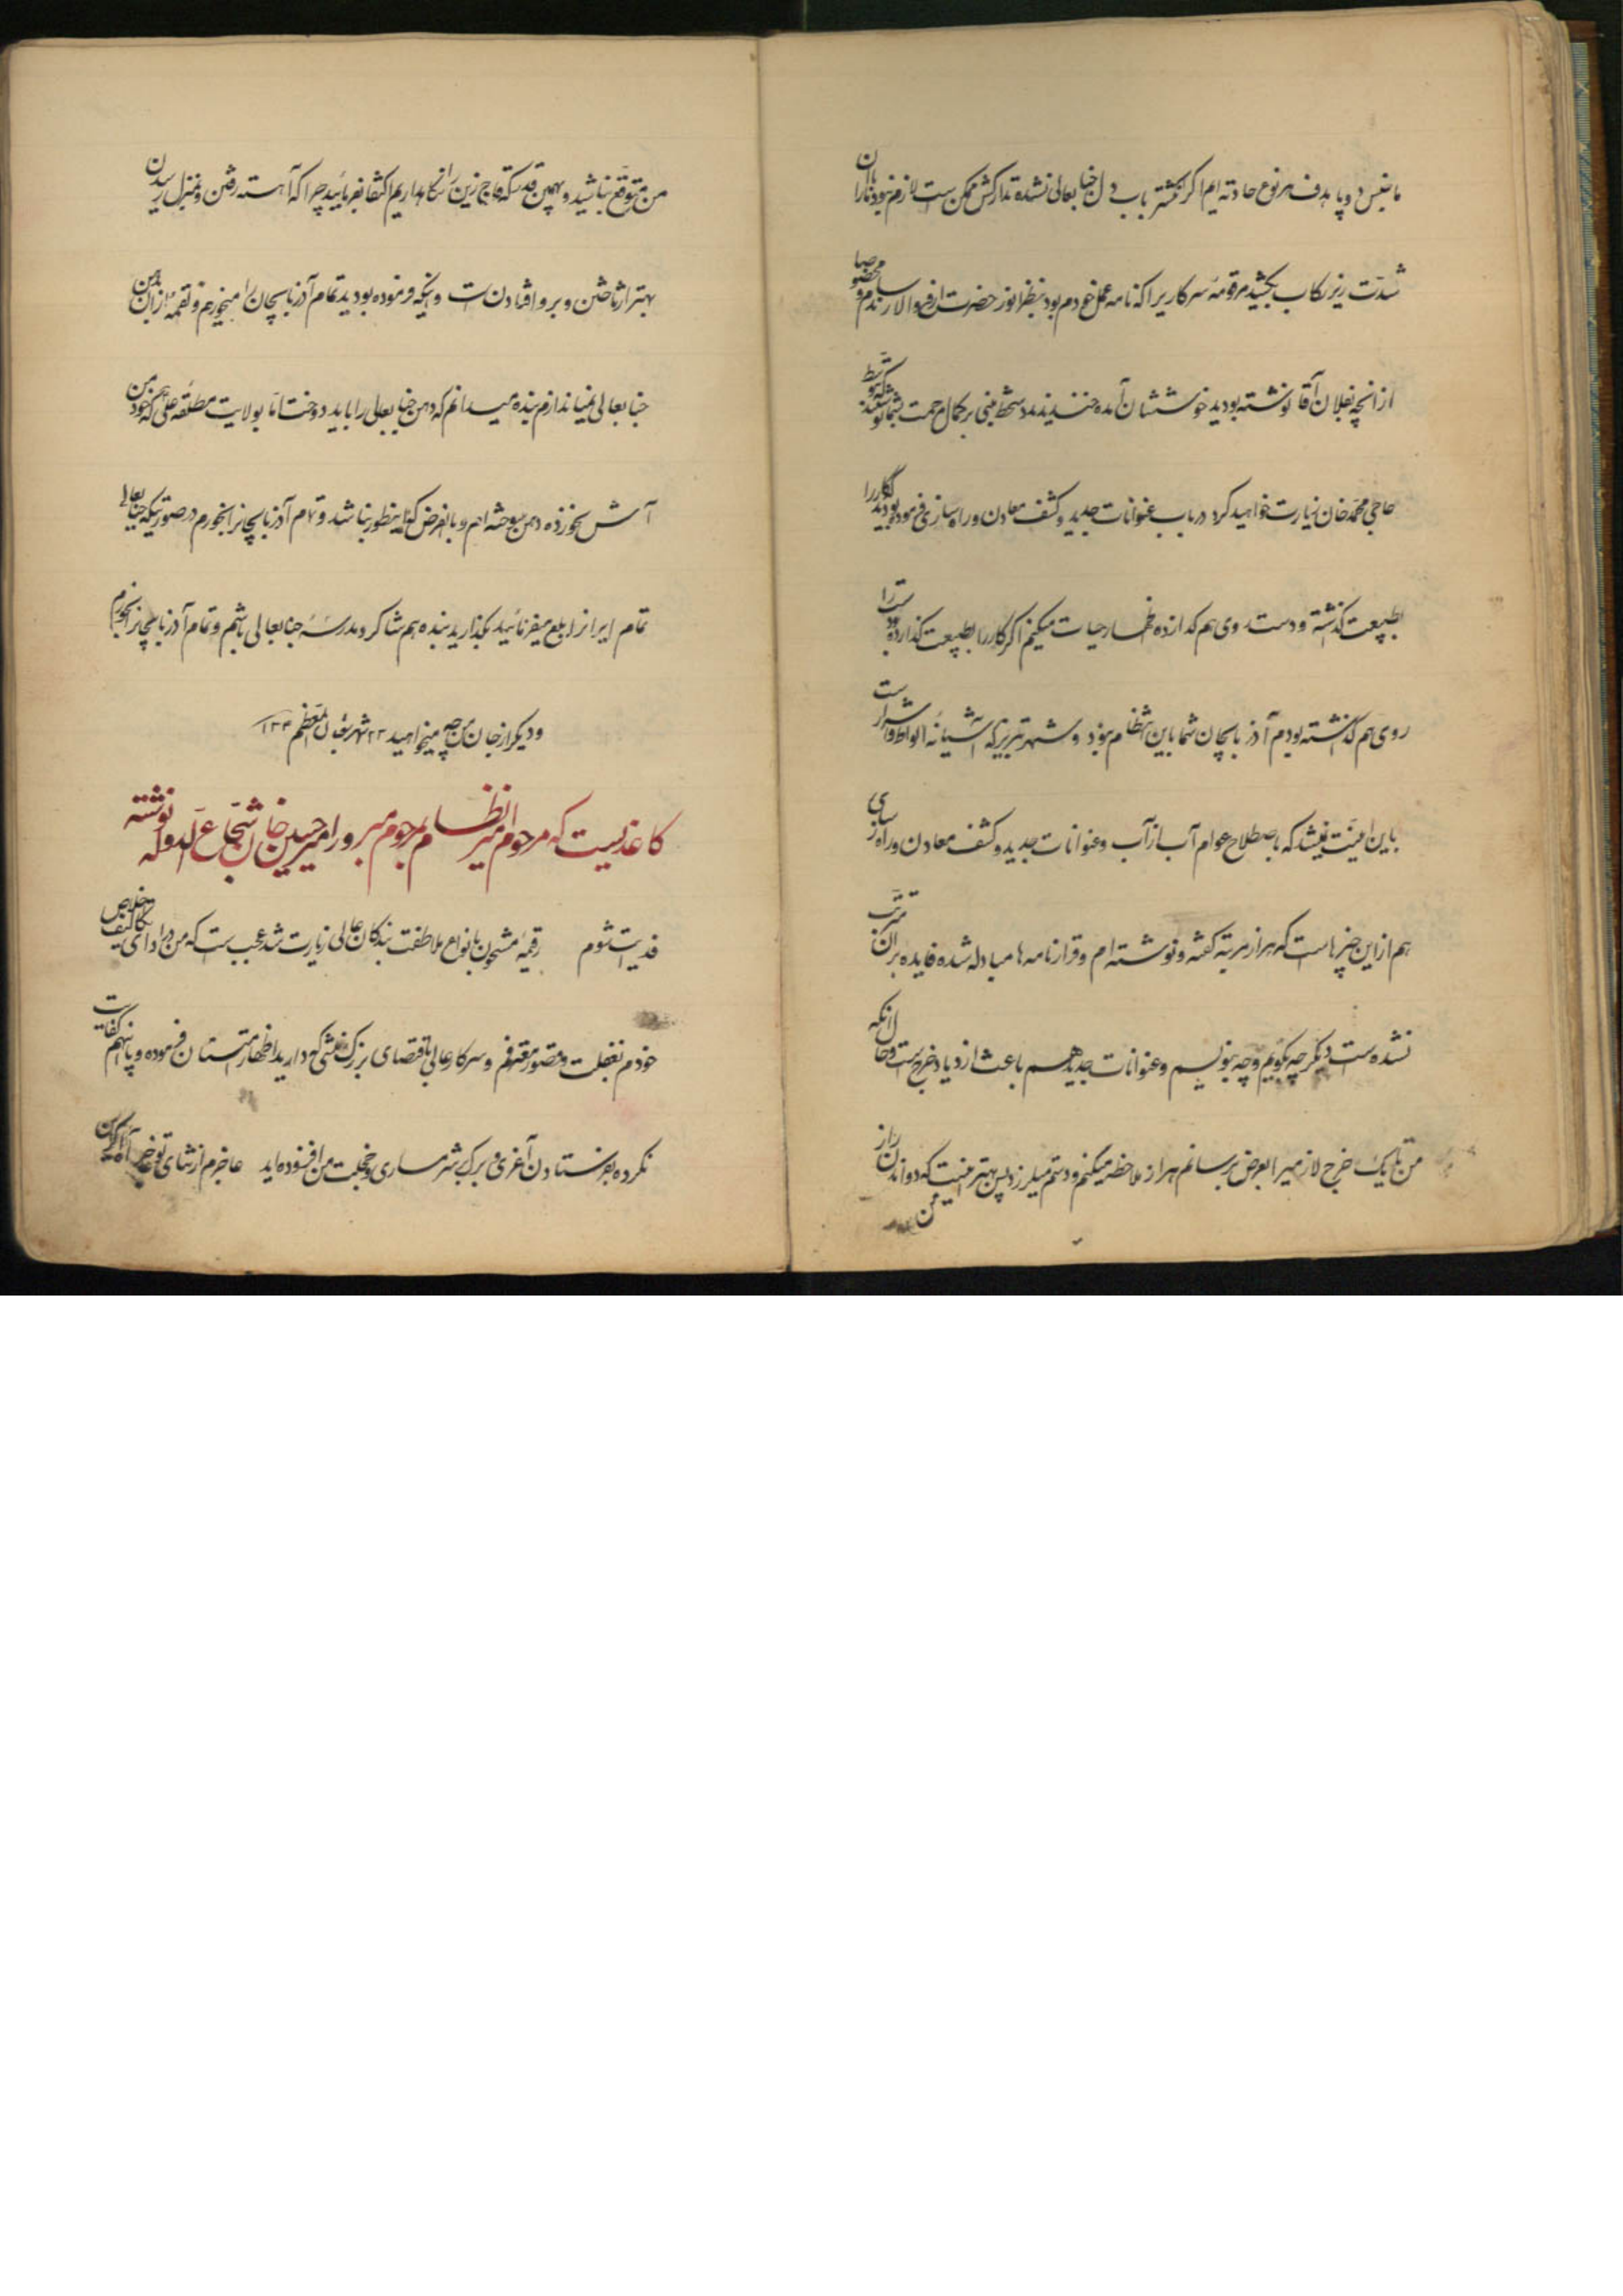 ما بنفس دوپا هدف هر نوع حادثه ایم اگر نگشته باب دل جنابعالی نشده تدارکش ممکن است لازم نبود نارا
شدّت زیر رکاب بکشید مرقومهٔ سرکار یرا که نامه عمل خودم بود بنظر انور حضرت ارفع والا رساندم و مخصوصا
از آنچه بفلان آقا نوشته بودید خوششان آمده خندیدند دستخط مبنی بر کمال رحمت بشما نوشتند که توسّط
حاجی محمّد خان زیارت خواهید کرد در باب عنوانات جدید و کشف معادن و راه سازی فرموده بودید کار را
بطبیعت گذشته و دست روی هم گذارده اظهار حیات میکنیم اگر کار را بطبیعت گذارده دست را
روی هم گذاشته بودم آذربایجان شما باین انتظام نبود و شهر تبریز که آشیانهٔ الواط و اشرار است
باین امنیّت نمیشد که باصطلاح عوام آب از آب و عنوانات جدید و کشف معادن و راه سازی
هم از این چیزهاست که هزار مرتبه گفته و نوشته ام و قرارنامه ها مبادله شده فایده بر آن مترتّب
نشده است دیگر چه بگویم و چه بنویسم و عنوانات جدید هم باعث ازدیاد خرج است و حال آنکه
من تا یک خرج لازمیرا بعرض برسانم هزار ملاحظه میکنم و دستم میلرزد پس بهتر اینست که دواندن را از
من
من متوقّع نباشید و بهمین قدر که قاچ زین را نگاه داریم اکتفا بفرمائید چرا که آهسته رفتن و بمنزل رسیدن
بهتر از تاختن و برو افتادن است و اینکه فرموده بودید تمام آذربایجان را میخورم و لقمهٔ از آن بدهن
جنابعالی نمیاندازم بنده میدانم که دهن جنابعالی را باید دوخت امّا بولایت مطلقه علی که خود من هم
آش نخورده دهن سوخته ام و بالفرض که اینطور نباشد و تمام آذربایجانرا بخورم در صورتیکه جنابعالی
تمام ایرانرا بلع میفرمائید بگذارید بنده هم شاگرد مدرسهٔ جنابعالی باشم و تمام آذربایجانرا بخورم
و دیگر از جان من چه میخواهید ۲۳ شهر شعبان المعظّم ۱۳۰۴
کاغذیست که مرحوم امیر نظام بمرحوم مبرور امیر حسین خان شجاع الدوله نوشته
فدیت شوم رقیمهٔ مشحون بانواع ملاطفت بندگان عالی زیارت شد عجب است که من در ادای تکالیف خلوص
خودم بغفلت و قصور معترفم و سرکار عالی باقتضای بزرگ منشی که دارید اظهار امتنان فرموده و باینهم کفایت
نکرده بفرستادن آغری و برک بشرمساری و خجلت من افزوده اید عاجزم از ثنای تو عاجز